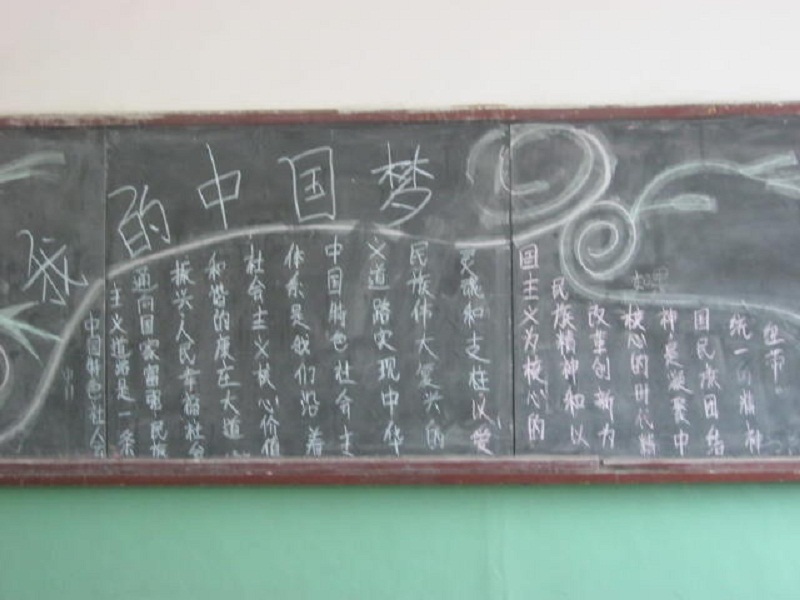 我的中国梦
中国特色社会
主义道路是一条
通向国家富强民族
振兴人民幸福社会
和谐的康庄大道
社会主义核心价值
体系是我们沿着
中国特色社会主
义道路实现中华
民族伟大复兴的
灵魂和支柱以爱
国主义为核心的
民族精神和以
改革创新为
核心的时代精
神是凝聚中
国民族团结
统一的精神
纽带。